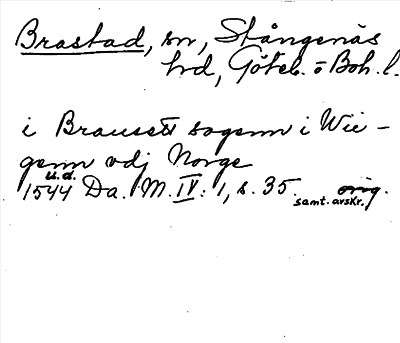 Brastad, sn, Stångenäs
hd, Göteb. o Boh. l.
i Brausett sogenn i Wie-
genn vdj Norge
u.d.
1544 Da. M. IV: 1, s. 35. orig.
samt. avskr.